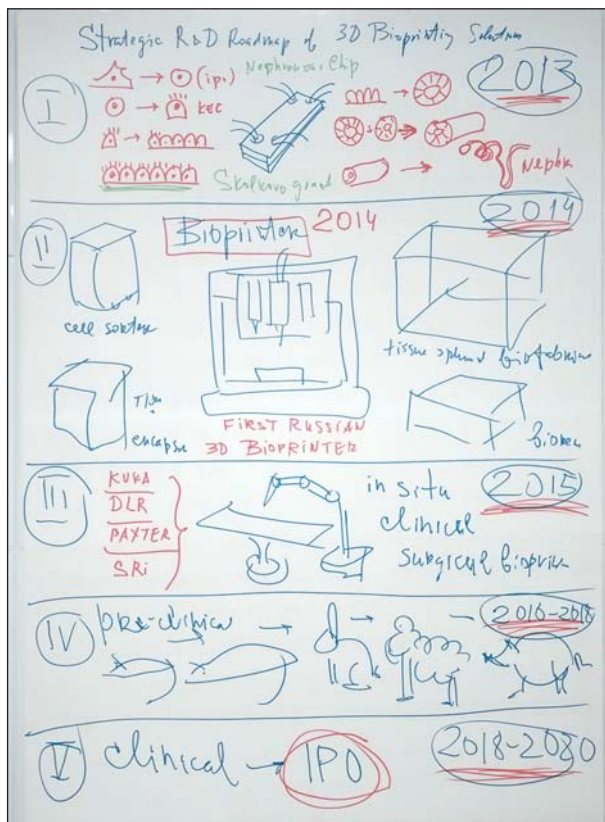 Strategic R&D Roadmap of 3D Bioprinting Solutions
I
(ips)
Nephron on Chip
2013
KEC
Skolkovo grant
Nephr
2014
II
Bioprinter 2014
cell sorter
tissue spheroid biofabric
encapsu
FIRST RUSSIAN
3D BIOPRINTER
III
KUKA
DLR
PAXTER
SRi
in situ
clinical
surgical bioprin
2015
IV
pre-clinical
2016-2018
V
clinical
IPO
2018-2080